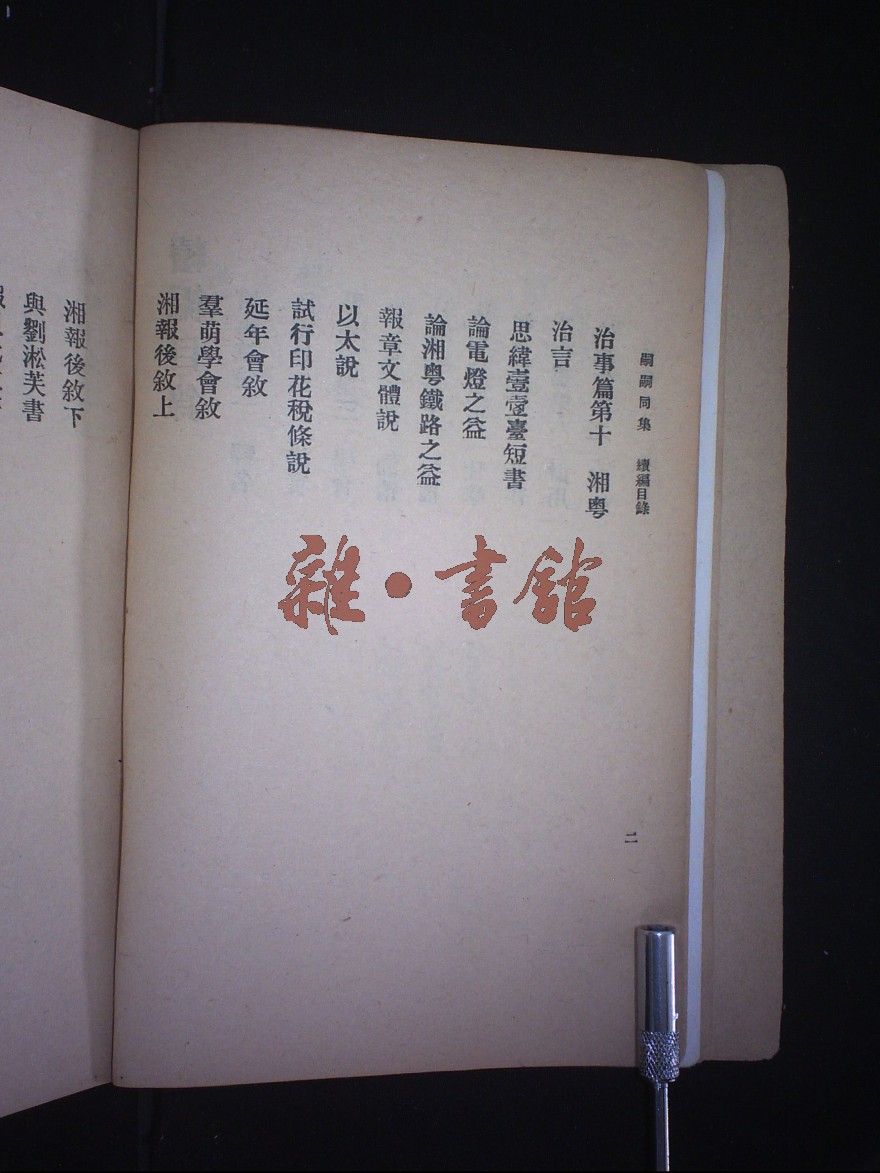 嗣嗣同集　續編目錄
治事篇第十　湘粵
治言
思緯壹壹臺短書
論電燈之益
論湘粵鐵路之益
報章文體說
以太說
試行印花稅條說
延年會敘
羣萌學會敘
湘報後敘上
二
湘報後敘下
與劉淞芙書
雜·書館